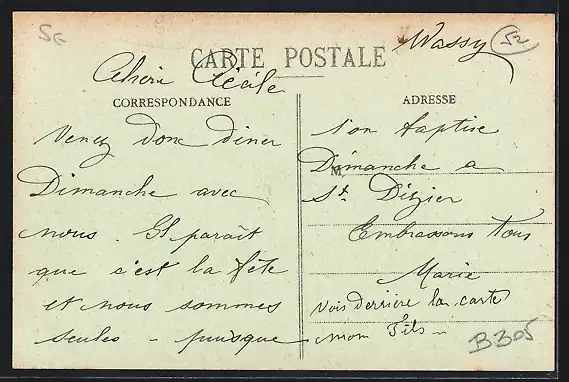 SE
Wassy
52
CARTE POSTALE
Chère Cécile
CORRESPONDANCE
Venez donc diner
Dimanche avec
nous. Il paraît
que c'est la fête
et nous sommes
seules - puisque
ADRESSE
l'on baptise
M
Dimanche a
St. Dizier
Embrassons Tous
Marie
Vois derrière la carte
mon Fils -
B305